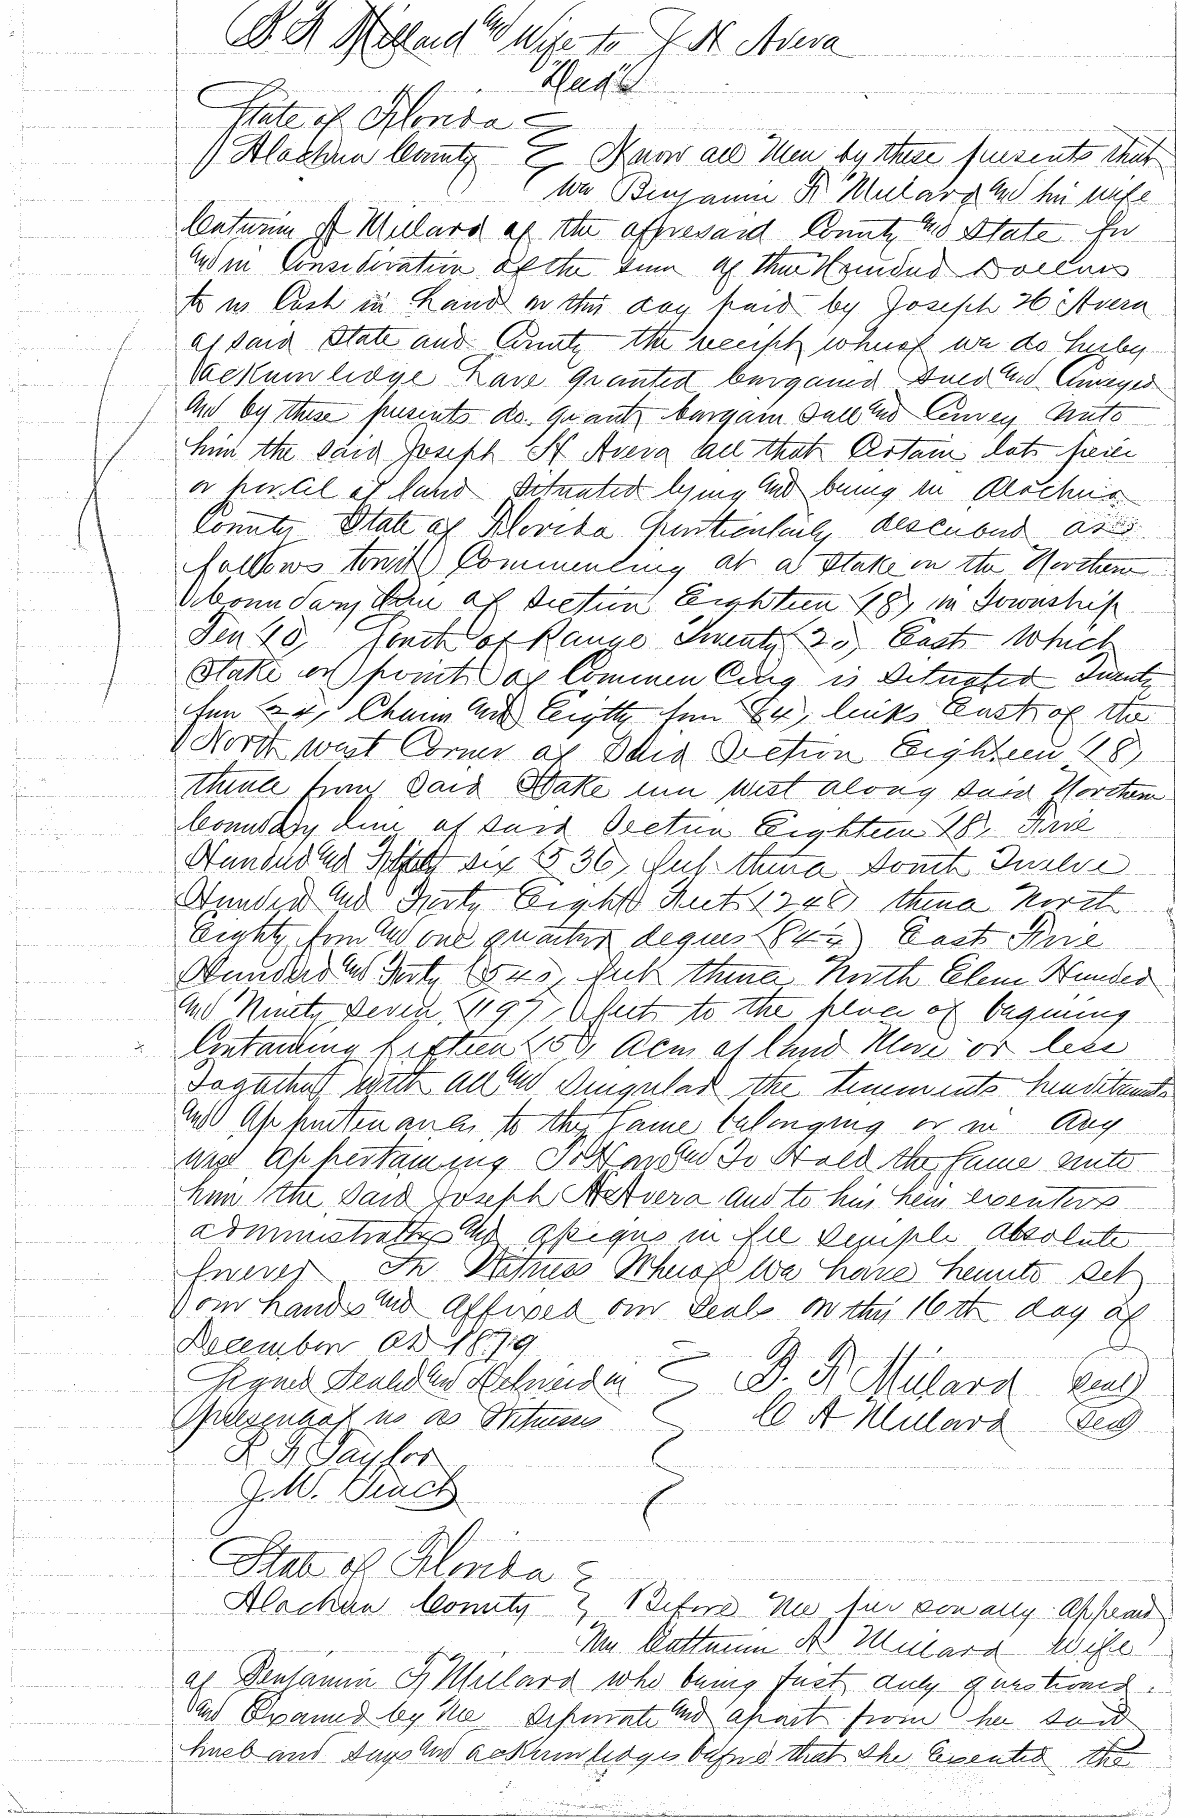 B. F. Millard and Wife to J H Avera
Deed
State of Florida
Alachua County Know all Men by these presents that
we Benjamin F Millard and his wife
Caturin A Millard of the afforesaid County and State for
and in Consideration of the sum of three Hundred Dollars
to us Cash in hand on this day paid by Joseph H Avera
of said State and County the receipt whereof we do herby
acknowledge have granted bargained sold and Conveyed
and by these presents do grant bargain sell and Convey unto
him the said Joseph H Avera all that Certain lot peice
or parcel of land situated lying and being in Alachua
County State of Florida particularly described as
follows towit Commencing at a stake on the Northern
boundary line of Section Eighteen 18, in Township
Ten 10, South of Range Twenty 20, East Which
stake or point of Commencing is situated Twenty
four 24, Chains and Eighty four 84, links East of the
North west Corner of Said Section Eighteen 18,
thence from said Stake run west along said Northern
boundary line of said Section Eighteen 18, Five
Hundred and six 536, feet thence South Twelve
Hundred and Forty Eight Feet 1248, thence North
Eighty four and one quarter degrees 84¼ East Five
Hundred and Forty 540, feet thence North Eleven Hundred
and Ninety seven 1197, feet to the place of begining
Containing fifteen 15, Acres of land More or less
Togather with all and singular the tenements hereditaments
and Appurtenances to the same belonging or in Any
wise appertaining To Have and To Hold the same unto
him the said Joseph H Avera and to his heirs executors
administrators and assigns in fee simple absolute
forever In Witness Whereof We have hereunto set
our hands and affixed our Seals on this 16th day of
December AD 1879
Signed Sealed and Delivered in B. F. Millard Seal
presence of us as Witnesses C A Millard Seal
F. Taylor
J. W.
State of Florida
Alachua County Before Me personally Appeard
Mrs Catturin A Millard Wife
of Benjamin F Millard who being first duly questioned
and Examed by Me seperate and apart from her said
husband says and acknowledges before that she Executed the